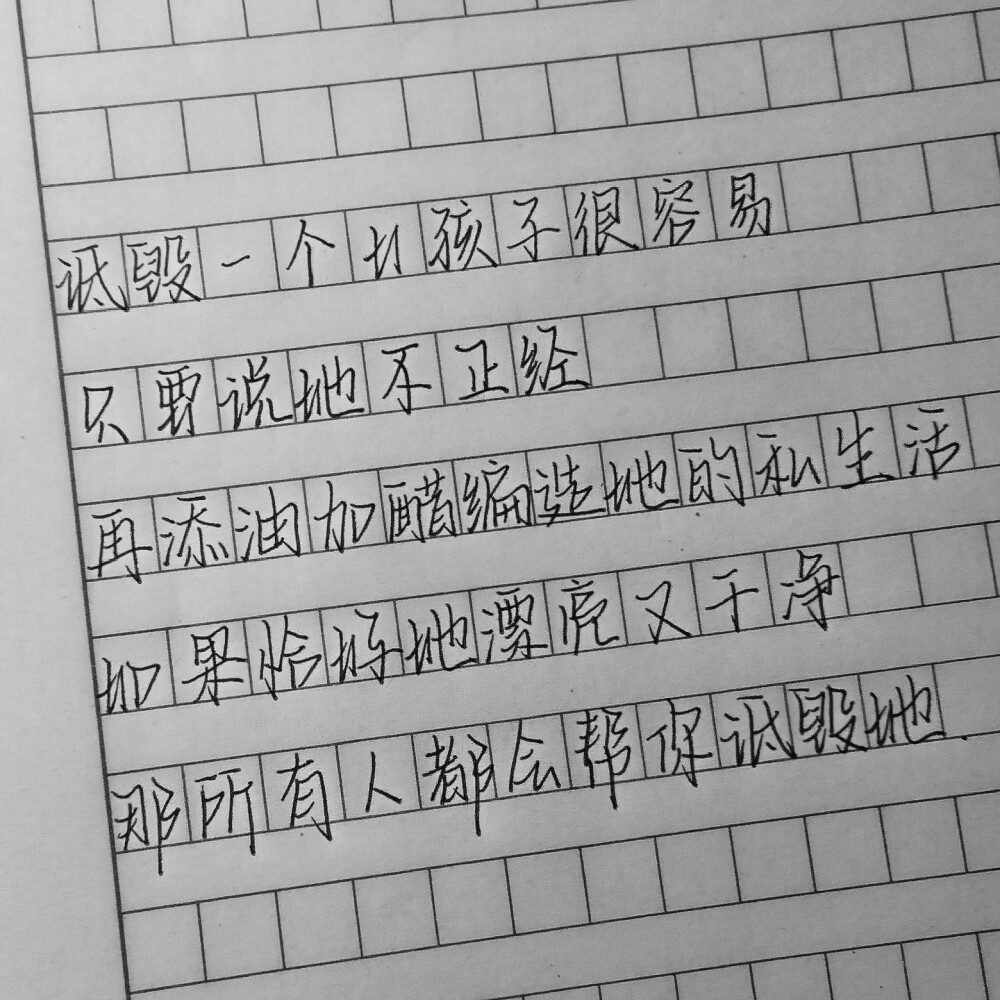 诋毁一个女孩子很容易
只要说她不正经
再添油加醋编造她的私生活
如果恰好她漂亮又干净
那所有人都会帮你诋毁她.